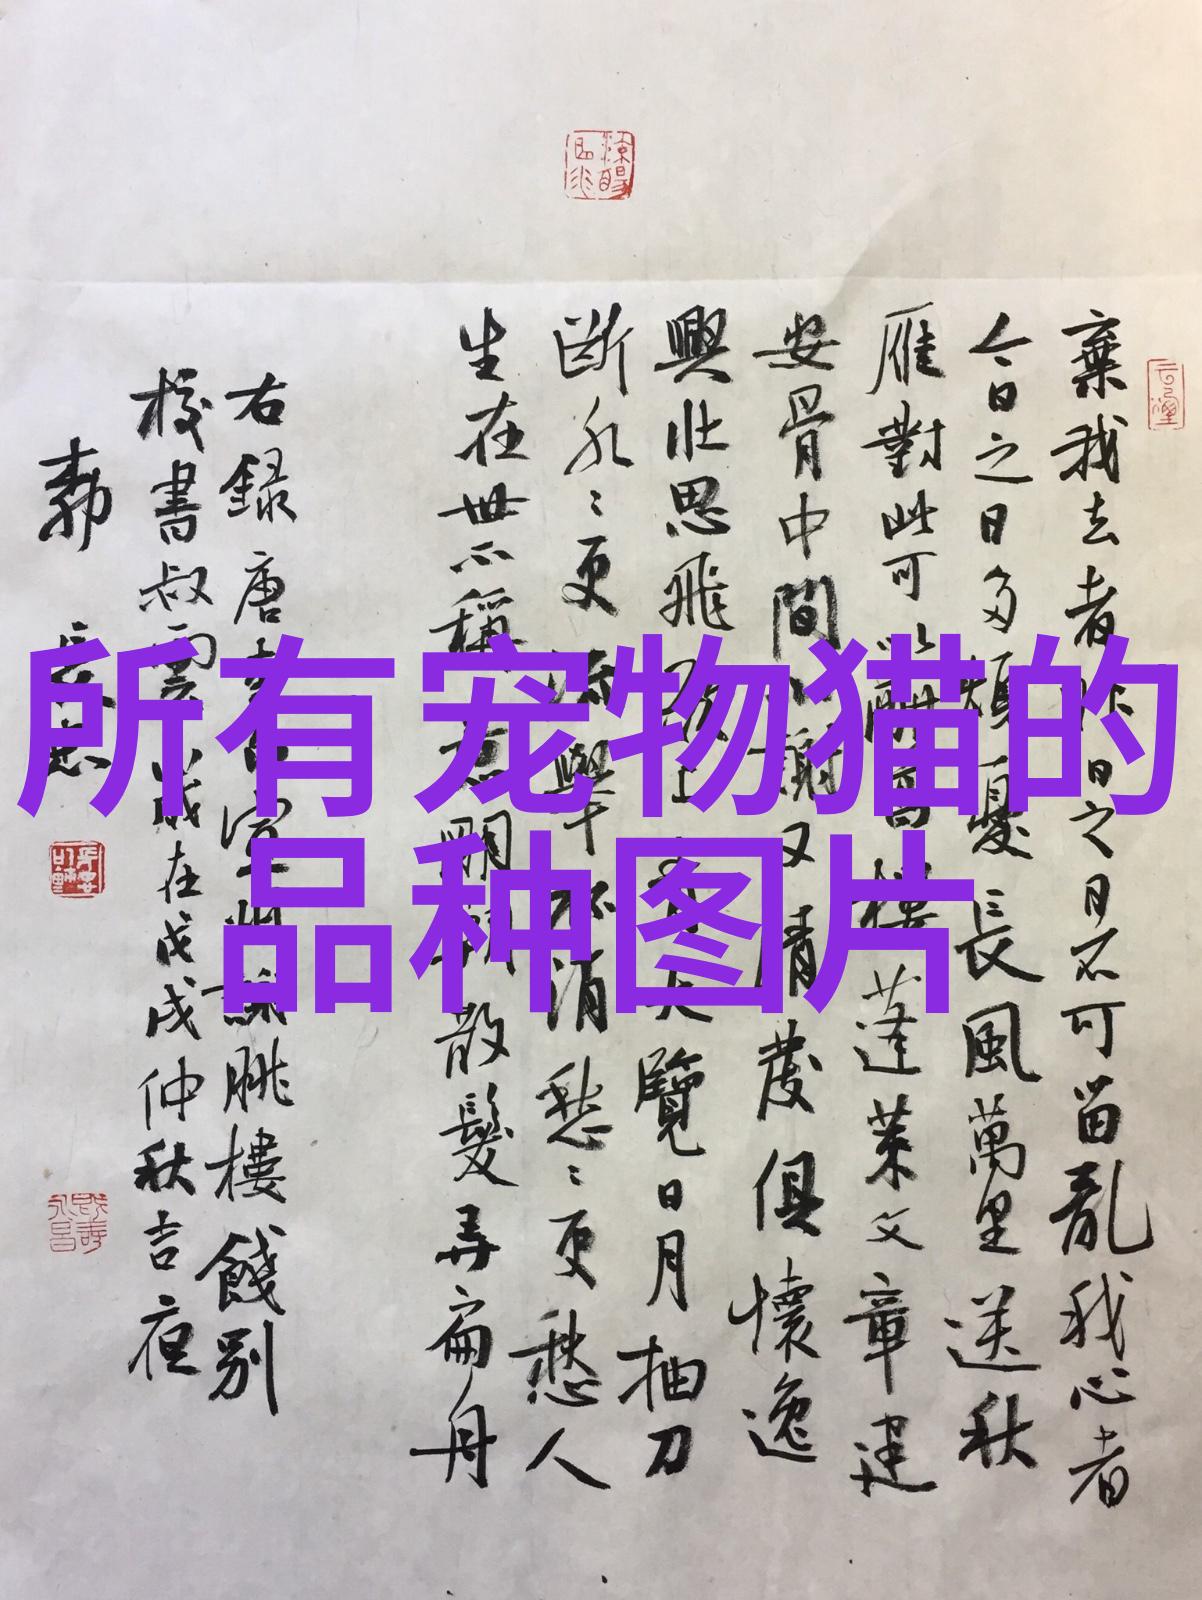 所有宠物猫的
品种图片
棄我去者昨日之日不可留亂我心者
今日之日多煩憂長風萬里送秋
雁對此可以酣高樓蓬萊文章建
安骨中間小謝又清發俱懷逸
興壯思飛欲上青天覽日月抽刀
斷水〻更流舉杯不消愁〻更愁人
生在世不稱意明朝散髮弄扁舟
右録唐李白宣州謝朓樓餞別
校書叔雲歲在戊戌仲秋吉夜